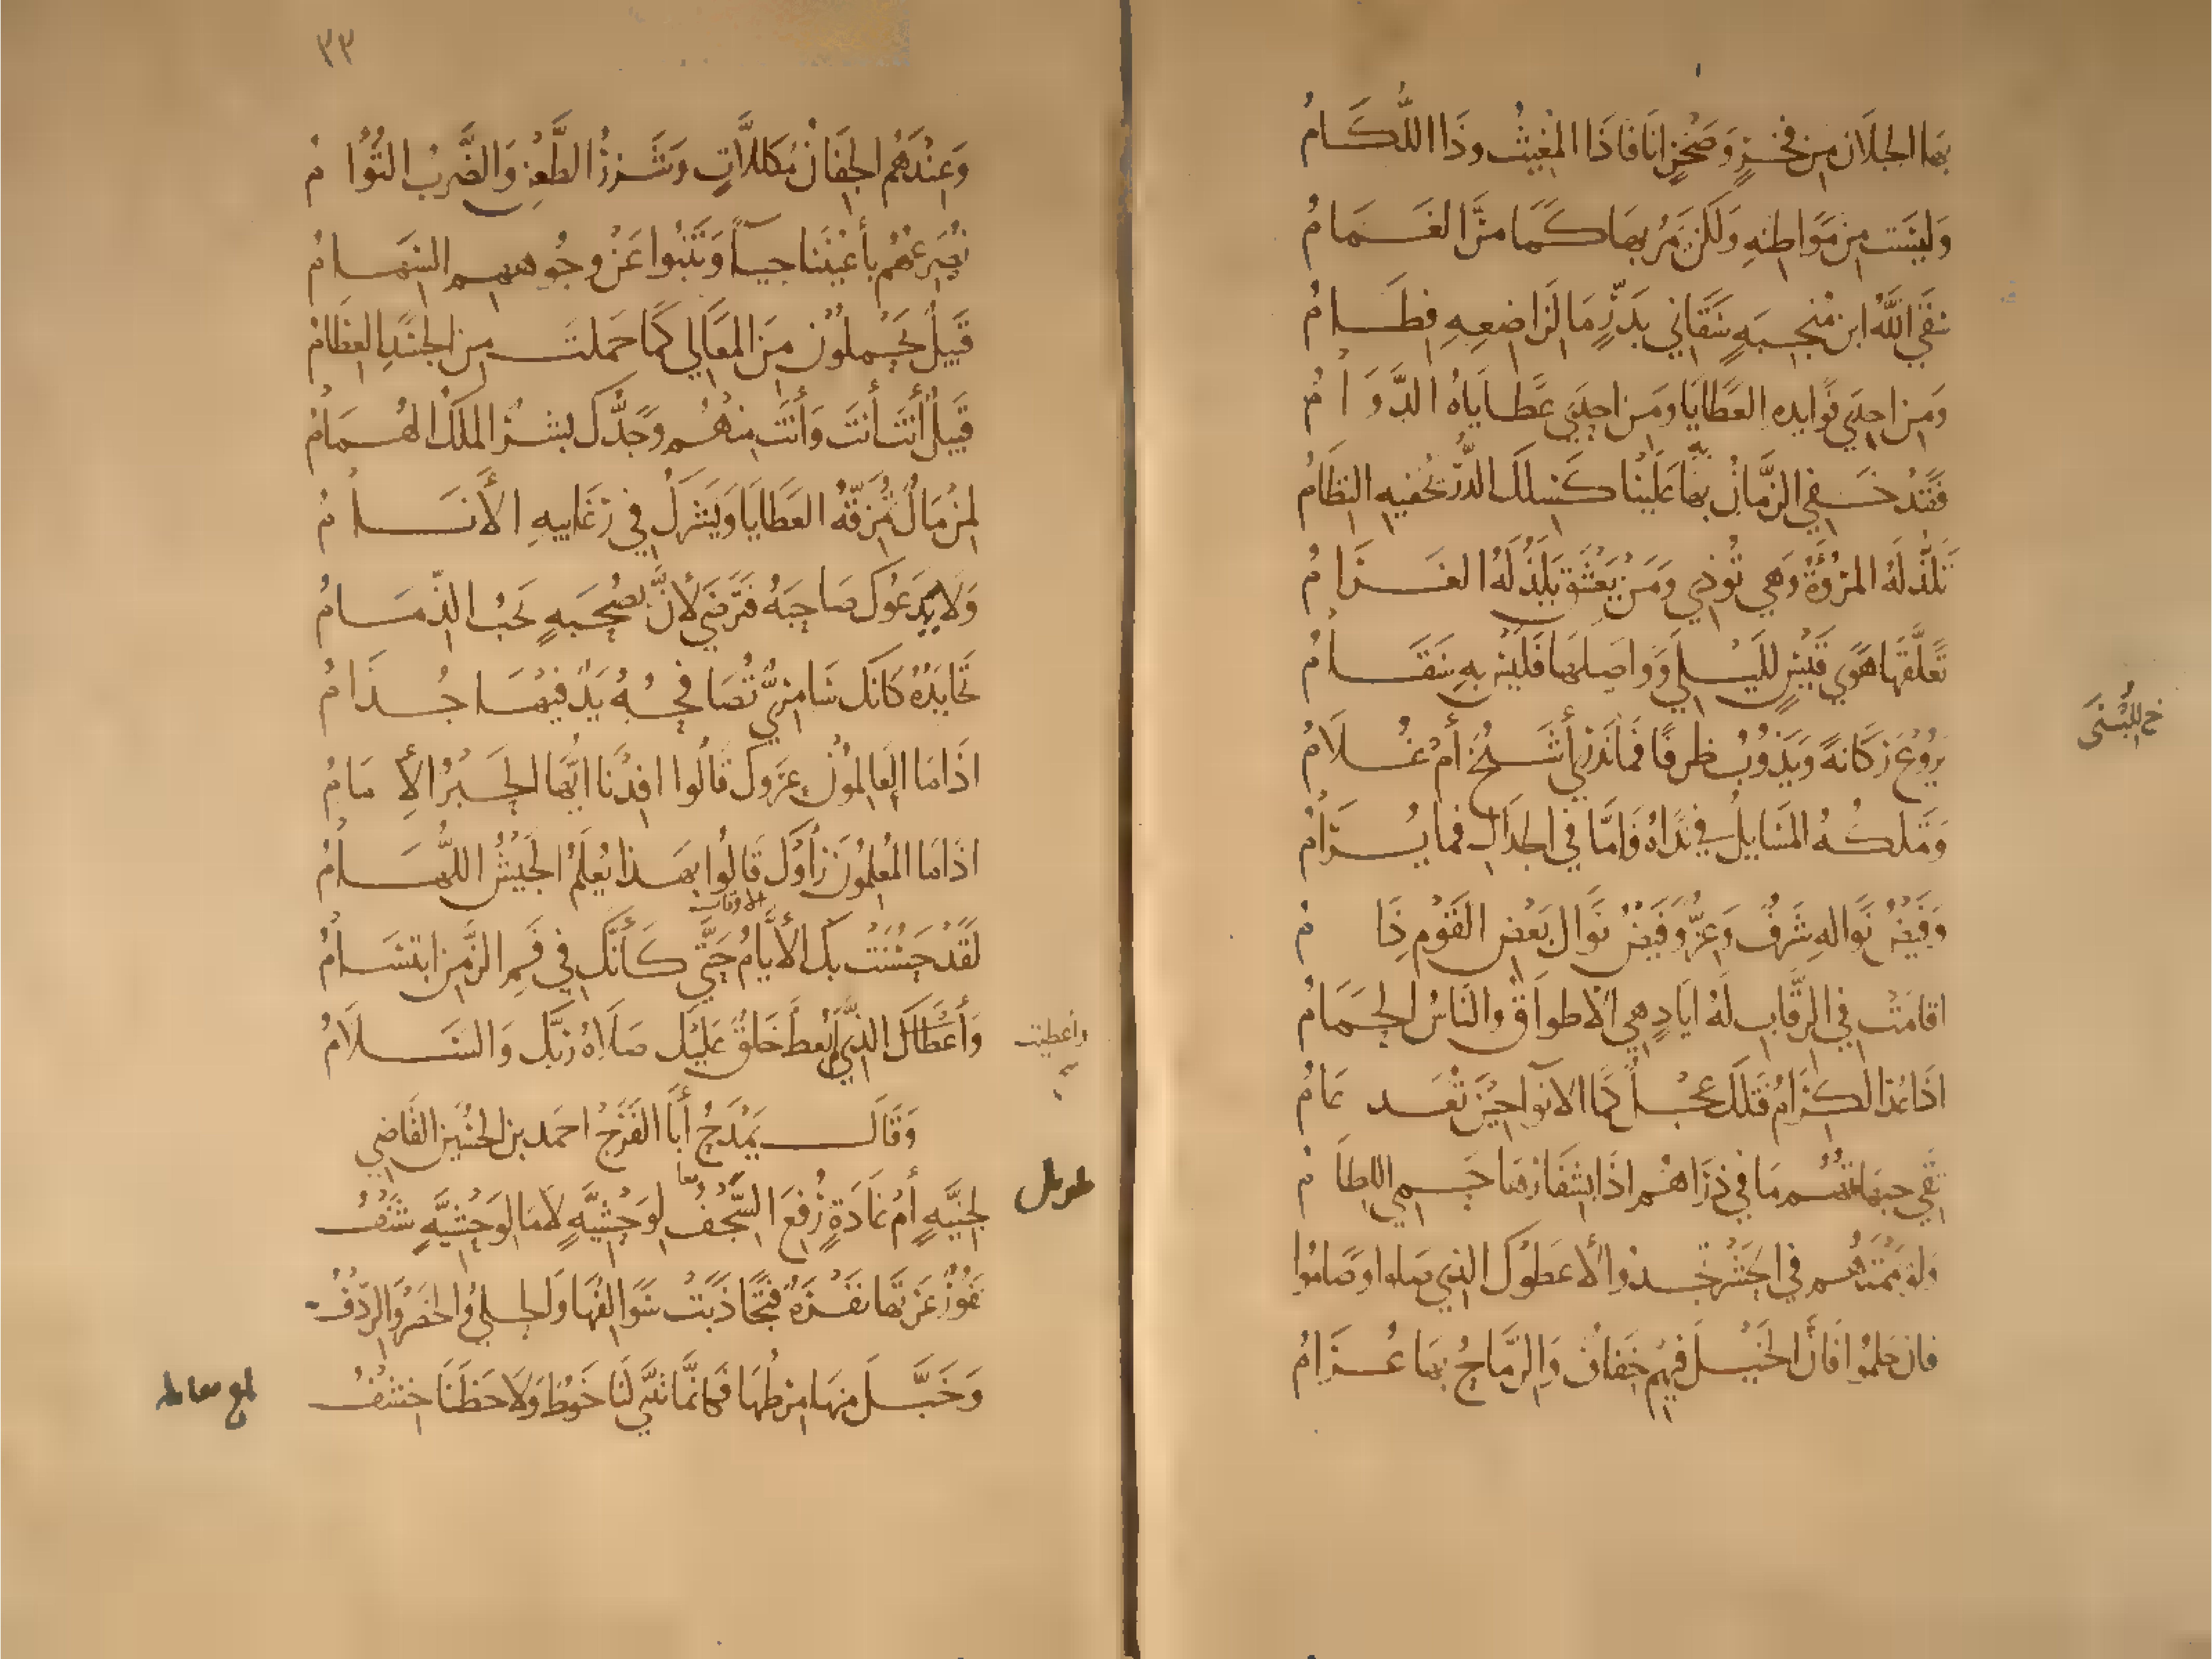 بهَا الجبَلَان مِن فَخْرٍ وَصَخْرٍ انَافَا ذَا المُغيثُ وَذَا اللُّكَامُ
وَليسَت مِن مَوَاطنِهِ وَلَكنْ يَمُرُّ بهَا كَمَا مَرَّ الغَمَامُ
سَقَى اللَّهُ ابن مُنْجِبَةٍ سَقَاني بِدَرٍّ مَا لِرَاضِعِهِ فِطَامُ
وَمِن احدَى فَوَايده العَطَايَا وَمِن احدَى عَطَايَاهُ الدَّوَامُ
فَقَدْ خَفِيَ الزَّمَانُ بهَا عَلَيْنَا كَسِلكِ الدُّرِّ يُخفيهِ النِّظَامُ
تَلَذُّ لَهُ المُرُوَّةُ وَهي تُوذِي وَمَنْ يَعْشَقْ يَلَذُّ لَهُ الغَرَامُ
تَعَلَّقَهَا هَوَى قَيْسٍ لِلَيْلَى وَوَاصَلَهَا فَلَيْسَ بهِ سَقَامُ
خ للُبْنَى
يَرُوعُ رَكَانَةً وَيَذُوبُ ظَرفًا فَمَا نَدْرِي أَشَيْخٌ أَمْ غُلَامُ
وَتَملكُهُ المَسَايِلُ في نَدَاهُ وَامَّا في الجدَال فمَا يُرَامُ
وَقَبْضُ نَوَالهِ شَرَفٌ وَعِزٌّ وَقَبْضُ نَوَال بَعْضِ القَوْمِ ذَامُ
اقامَتْ في الرِّقَاب لَهُ ايَادٍ هِي الاطوَاقُ وَالنَاسُ الحَمَامُ
اذَا عُدَّ الكِرَامُ فَتلكَ عِجْلٌ كَمَا الانوَا حِيْنَ تُعَد عَامُ
تَقي جبهَاتُهُم مَا في ذَرَاهُم اذَا بشفَارهَا حَمِيَ اللِطَامُ
وَلَوْ يَمَّمْتَهُم في الحَشْر تَجْدُوا لأعْطَوْكَ الذِي صَلوا وَصَامُوا
فان حَلُمُوا فَأنَّ الخَيْلَ فيهِم خِفَافٌ وَالرِّمَاحُ بهَا عُرَامُ
٣٣
وَعِنْدَهُم الجِفَانُ مُكَلَّلَاتٍ وَشَزْرُ الطَّعْنِ وَالضَّرْبُ التُّوَامُ
نُصَرِّعُهُم بأَعْيُنِنَا حَيَاءً وَتَنْبُوا عَنْ وجُوهِهِم السِّهَامُ
قَبيلٌ يَحْمِلُوْنَ مِنَ المَعَالي كَمَا حَمَلَتْ مِنَ الجَسَدِ العِظَامُ
قَبِيلٌ أَنْتَ أَنتَ وَأَنْتَ مِنهُم وَجَدُّكَ بِشْرٌ المَلكُ الهُمَامُ
لِمَنْ مَالٌ تُمَزِّقُهُ العَطَايَا وَيَشْرَكُ في رَغَايبِهِ الأَنَامُ
وَلَا يَدْعُوكَ صَاحِبَهُ فَتَرْضَى لأَنَّ بصُحْبَةٍ يَجبُ الذِّمَامُ
تُحَايدُهُ كَانَّكَ سَامِرِيٌّ تُصَافِحُهُ يَدٌ فيهَا جُذَامُ
اذَا مَا العَالِمُوْنَ عَرَوكَ قَالُوا افِدْنَا ايُّهَا الحَبْرُ الأِمَامُ
اذَا مَا المُعلِمُونَ رَأَوْكَ قَالُوا بهَذا يُعْلَمُ الجَيْشُ اللُّهَامُ
الاوقات
لَقَدْ حَسُنَتْ بكَ الأَيَّامُ حَتَّى كَأَنَّكَ في فَمِ الزَّمَنِ ابتِسَامُ
وَأُعْطيْتَ الذِّي لَمْ يُعْطَ خَلقٌ عَلَيْكَ صَلَاةُ رَبِّكَ وَالسَّلَامُ
واعطيت
وَقَالَ يَمْدَحُ أَبَا الفَرَجْ احمَد بن الحُسَيْنِ القَاضِي
لِجِنِّيَّةٍ أَمْ غَادَةٍ رُفِعَ السَّجْفُ لِوَحْشِيَّةٍ لَا مَا لِوَحْشِيَّةٍ شَنْفُ
طويل
نَفُوْرٌ عَرَتْهَا نَفْرَةٌ فَتَجَاذَبَتْ سَوَالِفُهَا وَالحلْيُ وَالخَصْرُ وَالرِّدْفُ
وَخَبَّلَ مِنهَا مِرْطُهَا فَكَانَّمَا تَثَنَّى لَنَا خُوطٌ وَلَاحَظَنَا خِشْفُ